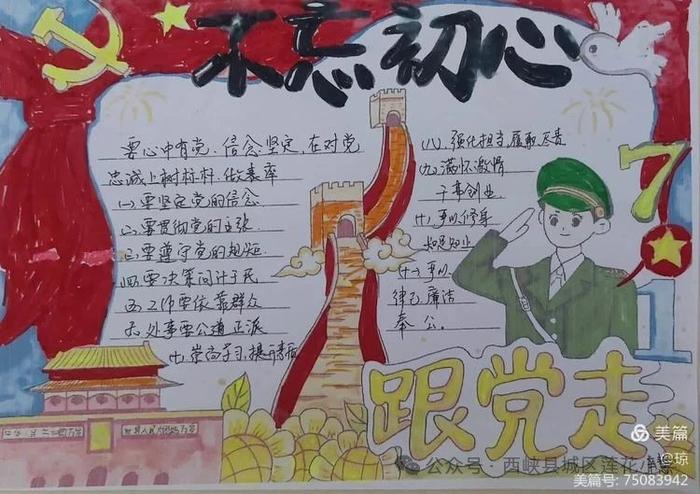 不忘初心
要心中有党、信念坚定,在对党
忠诚上树标杆、做表率
(一)要坚定党的信念
二要贯彻党的主张
三要遵守党的规矩
四要决策问计于民
五工作要依靠群众
六处事要公道正派
七、崇尚学习、提
(八)、强化担当,履职尽责
(九)满怀激情
干事创业
十、事以修身
知足知止
十一事以
律己廉洁
奉公。
7
1
跟党走
美篇
@琼
公众号·西峡县城区莲花
美篇号:75083942